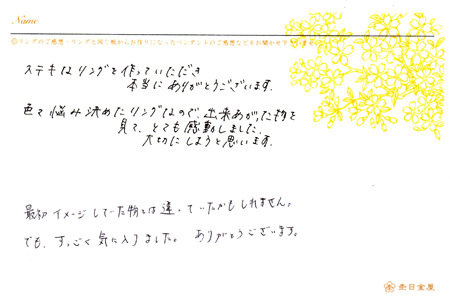 Name
◎リングのご感想・リングと同じ梅からお作りになったペンダントのご感想などをお聞かせ下さいませ
ステキなリングを作っていただき
本当にありがとうございます。
色々悩み決めたリングなので、出来あがった物を
見て、とても感動しました。
大切にしようと思います。
最初イメージしていた物とは違っていたかもしれません。
でも、すっごく気に入りました。 ありがとうございます。
杢目金屋